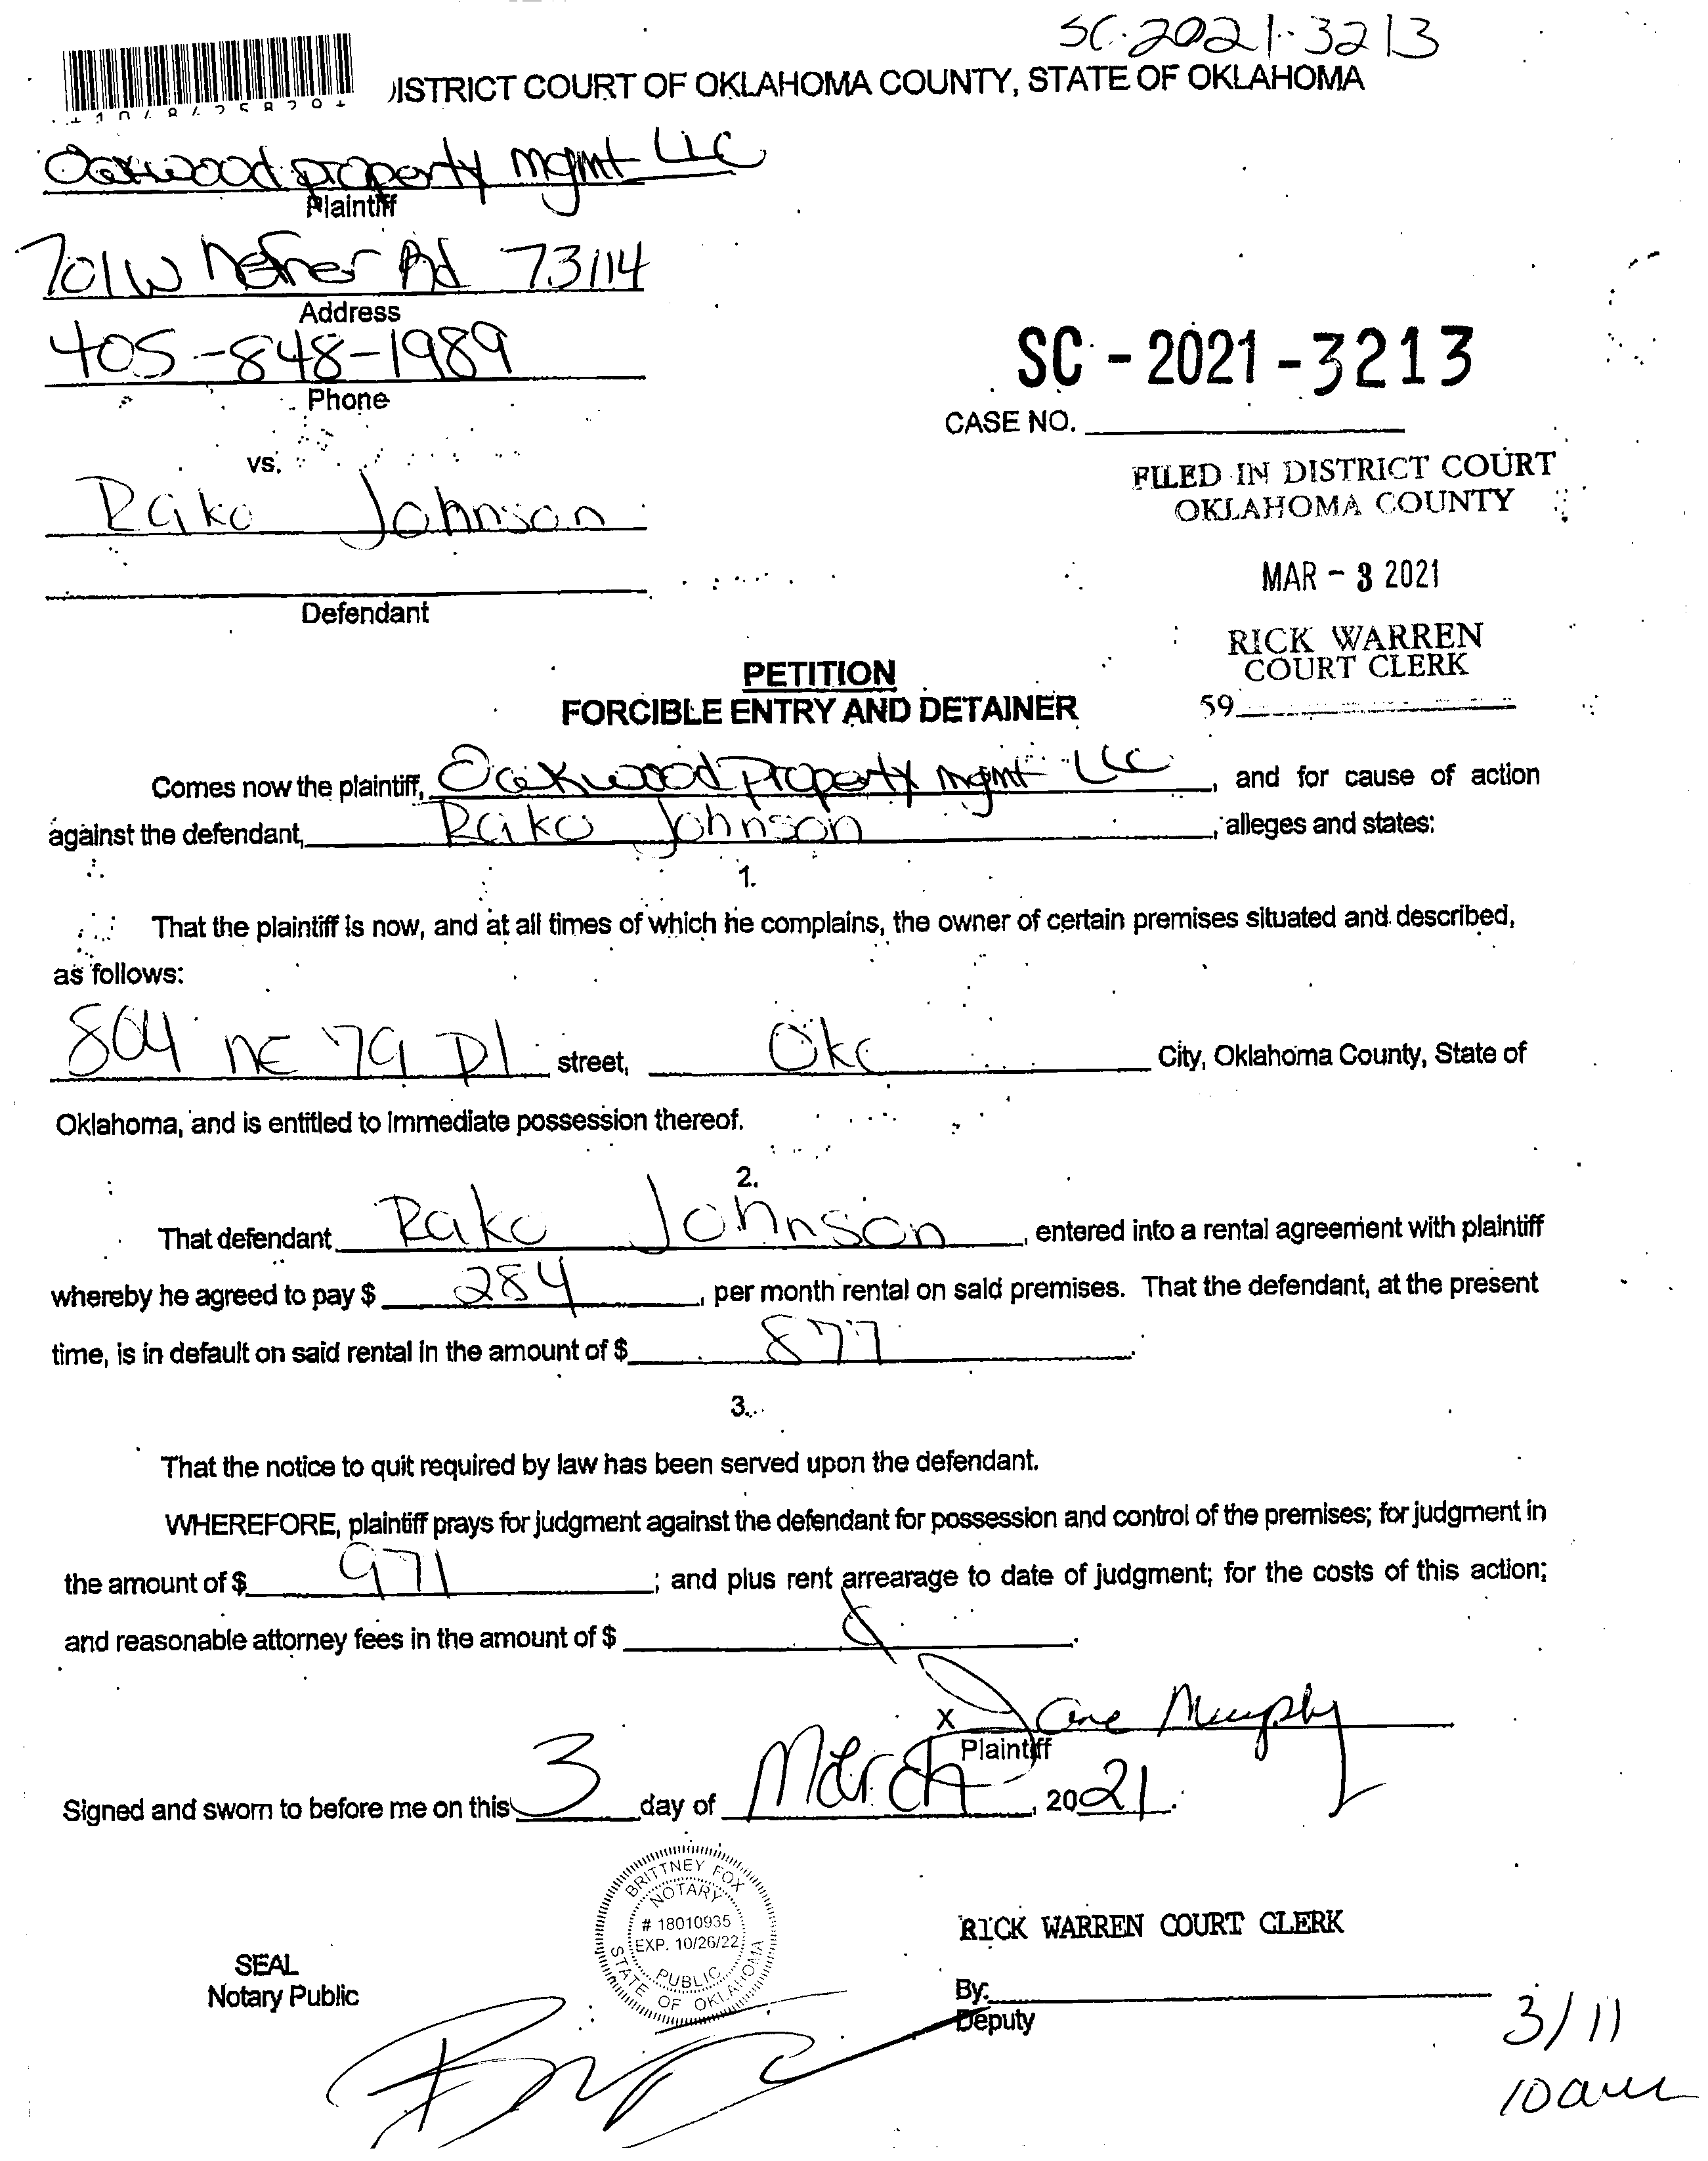 SC-2021-3213
DISTRICT COURT OF OKLAHOMA COUNTY, STATE OF OKLAHOMA
Oakwood property mgmt LLC
Plaintiff
701 W Hefner Rd 73114
Address
405-848-1989
Phone
SC - 2021 - 3213
CASE NO.
vs.
FILED IN DISTRICT COURT
OKLAHOMA COUNTY
Johnson
MAR - 3 2021
Defendant
RICK WARREN
COURT CLERK
59
PETITION
FORCIBLE ENTRY AND DETAINER
Comes now the plaintiff, Oakwood Property mgmt LLC, and for cause of action
against the defendant, Johnson, alleges and states:
1.
That the plaintiff is now, and at all times of which he complains, the owner of certain premises situated and described,
as follows:
804 NE 79 Pl street, Okc City, Oklahoma County, State of
Oklahoma, and is entitled to immediate possession thereof.
2.
That defendant Johnson, entered into a rental agreement with plaintiff
whereby he agreed to pay $ 284, per month rental on said premises. That the defendant, at the present
time, is in default on said rental in the amount of $ 877.
3.
That the notice to quit required by law has been served upon the defendant.
WHEREFORE, plaintiff prays for judgment against the defendant for possession and control of the premises; for judgment in
the amount of $ 971; and plus rent arrearage to date of judgment; for the costs of this action;
and reasonable attorney fees in the amount of $
X Jane Murphy
Plaintiff
Signed and sworn to before me on this 3 day of March, 2021.
BRITTNEY FOX
NOTARY
# 18010935
EXP. 10/26/22
PUBLIC
STATE OF OKLAHOMA
RICK WARREN COURT CLERK
SEAL
Notary Public
By:
Deputy
3/11
10am